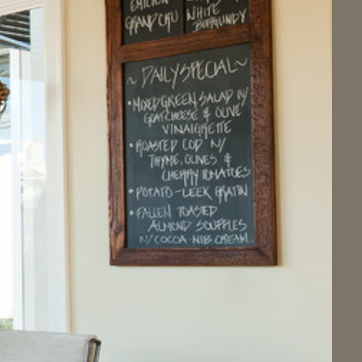 EMILION
GRAND CRU
WHITE
BURGUNDY
~ DAILY SPECIAL ~
• MIXED GREEN SALAD W/
GOAT CHEESE & OLIVE
VINAIGRETTE
• ROASTED COD W/
THYME, OLIVES &
CHERRY TOMATOES
• POTATO-LEEK GRATIN
• FALLEN TOASTED
ALMOND SOUFFLES
W/ COCOA NIB CREAM